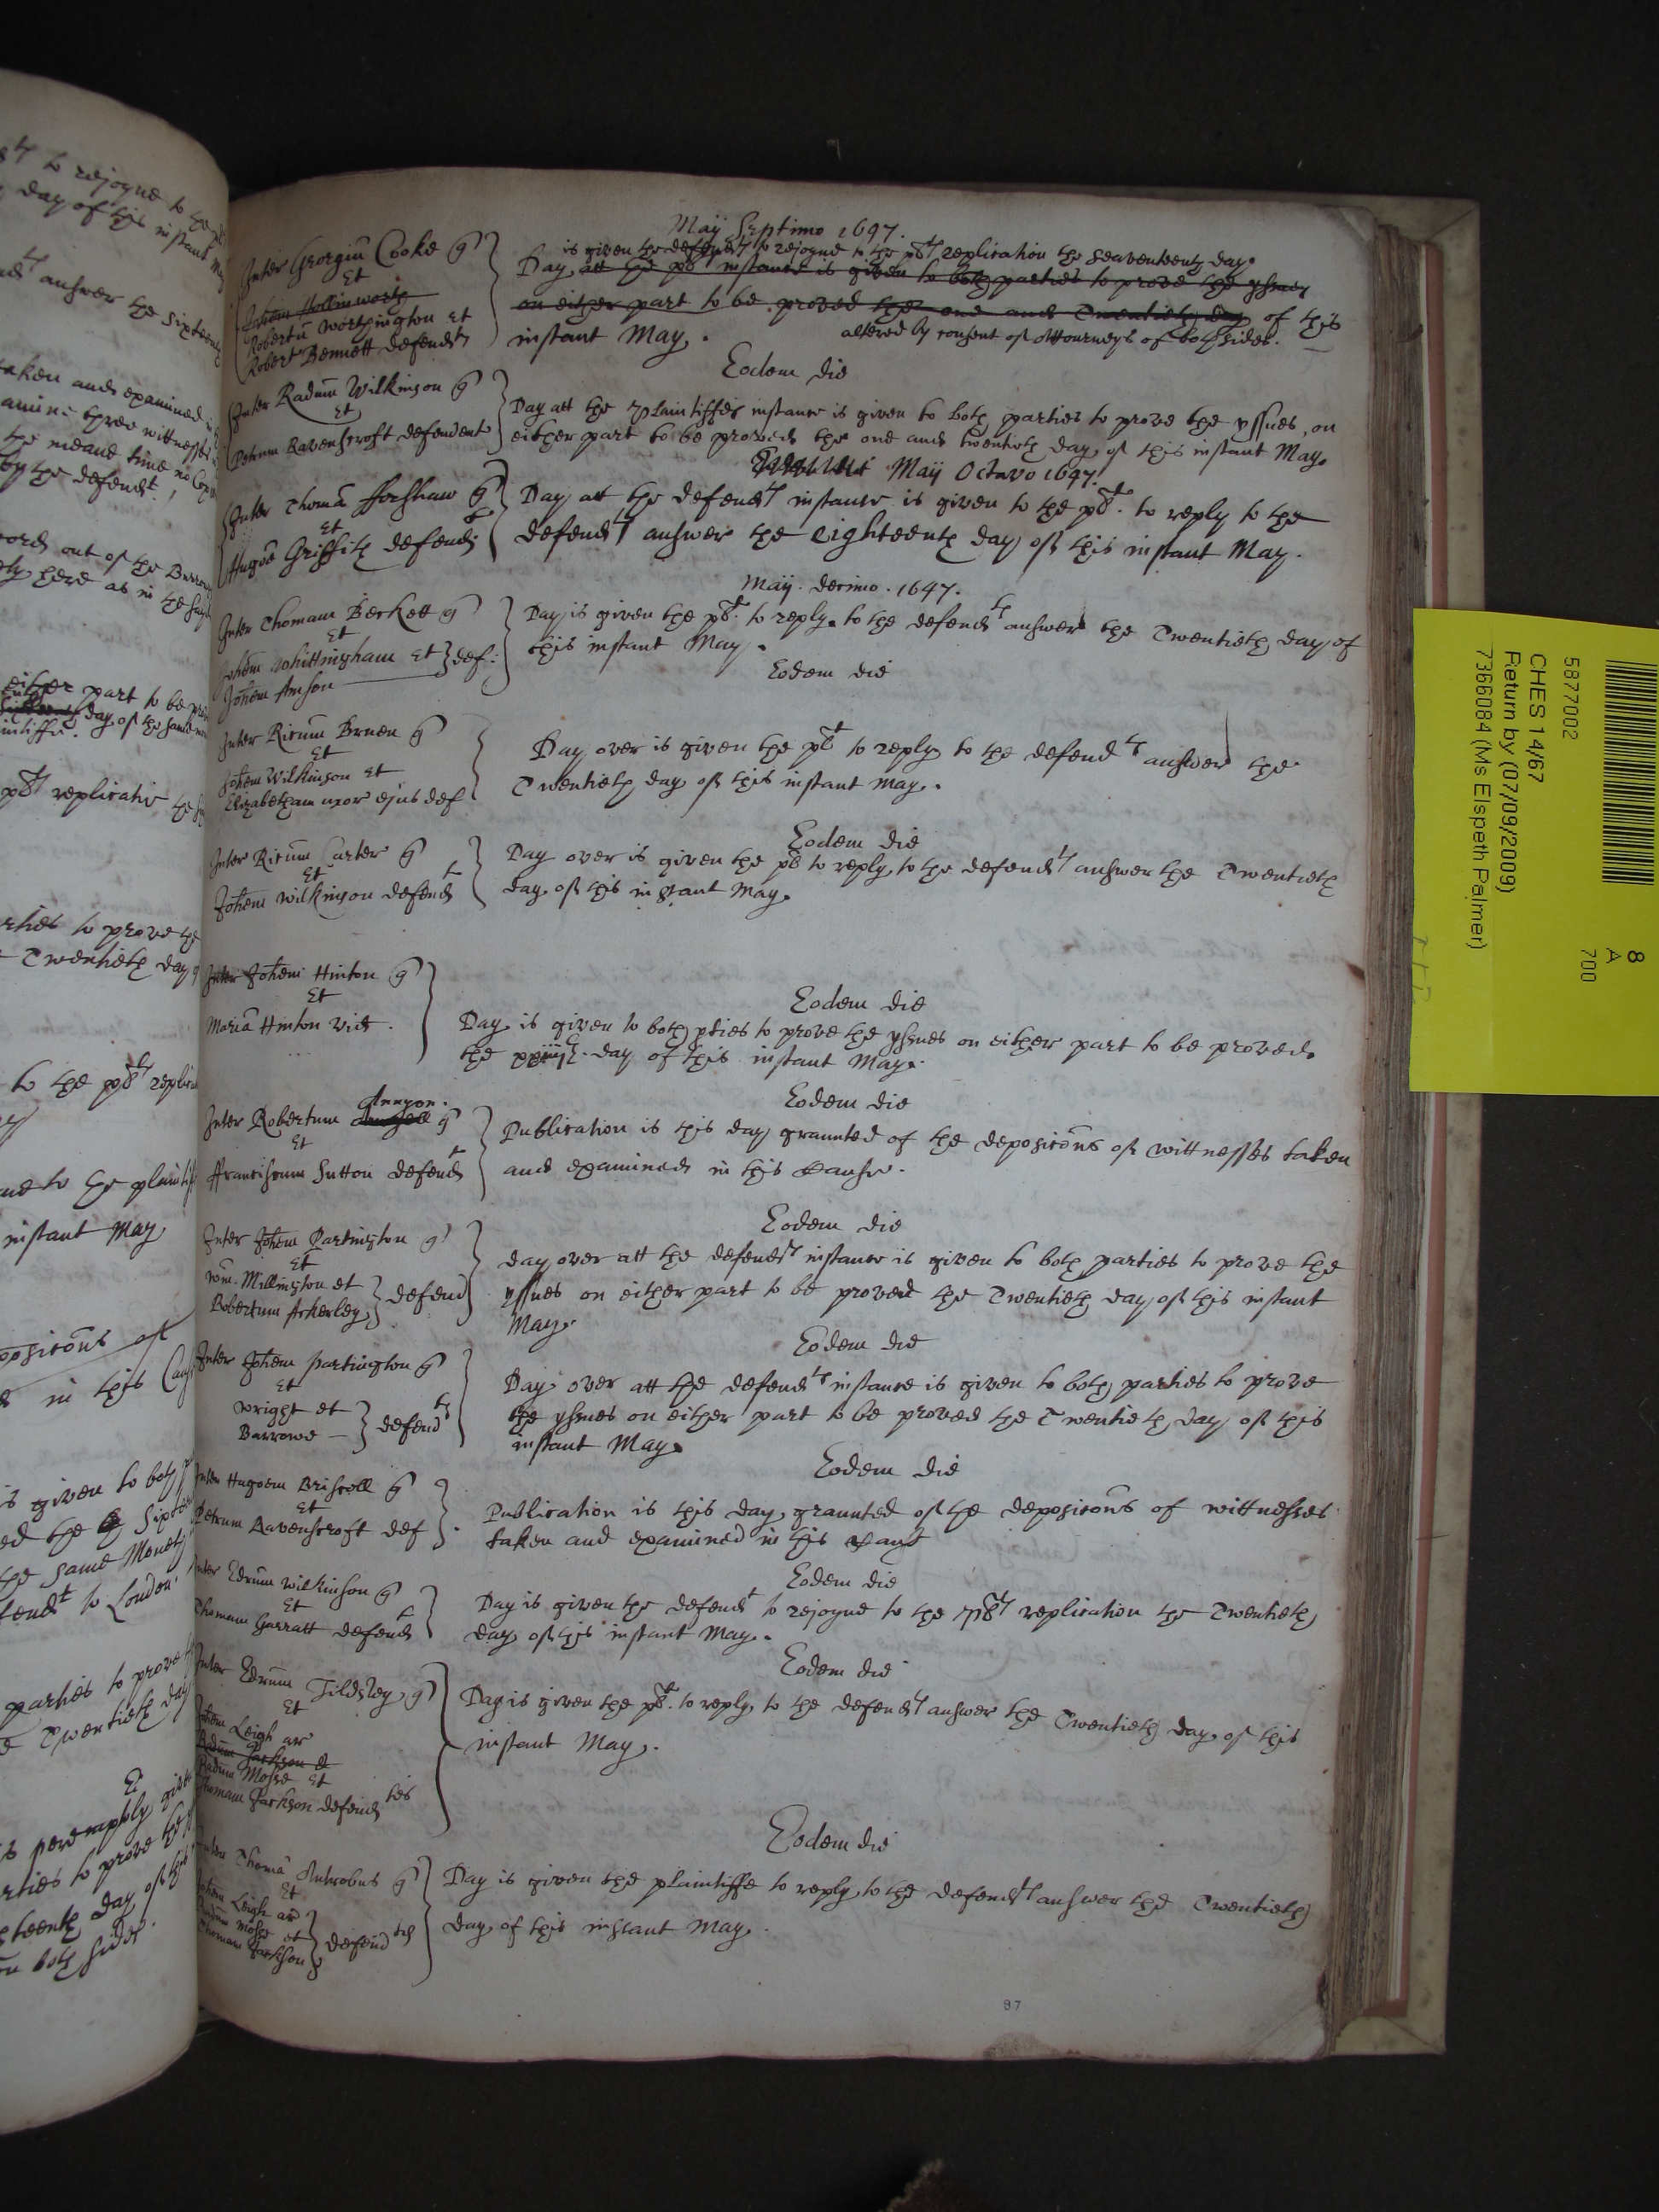 Maij Septimo 1647.
Inter Georgiũ Cooke q
Et
Johem Hollinworth
Robertũ Worthington et
Robert Bennett defendts
is given the defendts to rejoyne to the plts replication the seaventeenth day
Day att the plts instance is given to both parties to prove the yssues
on either part to be proved the one and Twentieth day of this
instant May.
altered by consent of Attourneys of both sides.
Eodem die
Inter Radum Wilkinson q
Et
Petrum Ravenscroft defendent
Day att the Plaintiffes instance is given to both parties to prove the yssues, on
either part to be proved the one and twentieth day of this instant May.
Maij Octavo 1647.
Inter Thomã fforshaw q
Et
Hugõe Griffith defendt
Day att the defendts instance is given to the plt. to reply to the
defendts answer the eighteenth day of this instant May.
Maij. decimo. 1647.
Inter Thomam Beckett q
Et
Johẽm Whittingham Et
Johem Amson def:
Day is given the plt. to reply to the defendts answer the Twentieth day of
this instant May.
Eodem die
Inter Ricum Bruen q
Et
Johem Wilkinson Et
Elizabetham uxor ejus def
Day over is given the plt to reply to the defendts answer the
Twentieth day of this instant May.
Eodem die
Inter Ricum Carter q
Et
Johem Wilkinson defendt
Day over is given the pl to reply to the defendts answer the Twentieth
day of this instant May.
Eodem die
Inter Johem Hinton q
Et
Mariã Hinton vid.
Day is given to both pties to prove the yssues on either part to be proved
the day of this instant May.
Eodem die
Annyon.
Inter Robertum q
Et
ffranciscum Sutton defendt
Publication is this day graunted of the depositõns of wittnesses taken
and examined in this Cause.
Eodem die
Inter Johem Partington q
Et
Wm. Millington et
Robertum Ackerley defend
day over att the defendts instance is given to both parties to prove the
yssues on either part to be proved the Twentieth day of this instant
May.
Eodem die
Inter Johem Partington q
Et
Wright et
Barrowe defendts
Day over att the defendts instance is given to both parties to prove
the yssues on either part to be proved the Twentieth day of this
instant May.
Eodem die
Inter Hugoem Briscoll q
Et
Petrum Ravenscroft def
Publication is this day graunted of the depositõns of wittnesses
taken and examined in this caus
Eodem die
Inter Edrum Wilkinson q
Et
Thomam Garratt defendt
Day is given the defendt to rejoyne to the Plts replication the Twentieth
day of this instant May.
Eodem die
Inter Edrum Tildsley q
Et
Johem Leigh ar
Radum Jackson et
Radum Mosse Et
Thomam Jackson defend tes
Day is given the plt. to reply to the defendts answer the Twentieth day of this
instant May.
Eodem die
Inter Thomã Antrobus q
Et
Johem Leigh ar
Radum Mosse et
Thomam Jackson defend tes
Day is given the plaintiffe to reply to the defendts answer the Twentieth
day of this instant May.
97
5877002
CHES 14/67
Return by (07/09/2009)
7366084 (Ms Elspeth Palmer)
8
A
700